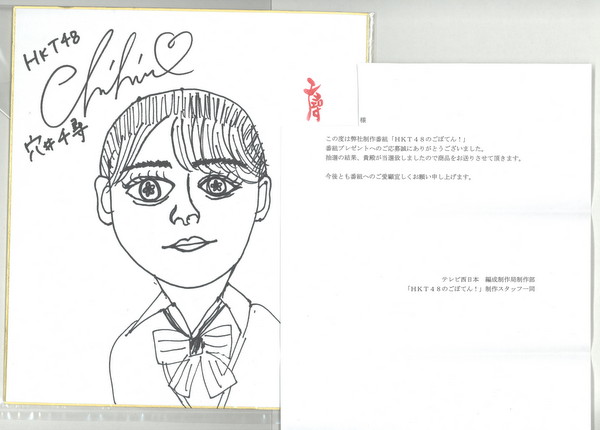 HKT48
Chihiro
穴井千尋
様
この度は弊社制作番組「ＨＫＴ４８のごぼてん！」
番組プレゼントへのご応募誠にありがとうございました。
抽選の結果、貴殿が当選致しましたので商品をお送りさせて頂きます。
今後とも番組へのご愛顧宜しくお願い申し上げます。
テレビ西日本　編成制作局制作部
「ＨＫＴ４８のごぼてん！」制作スタッフ一同